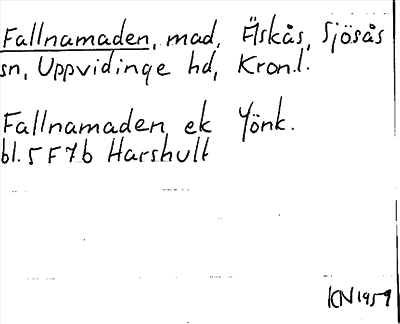 Fallnamaden, mad, Äskås, Sjösås
sn, Uppvidinge hd, Kron.l.
Fallnamaden ek Yönk.
bl. 5 F 7 b Harshult
KN 1959